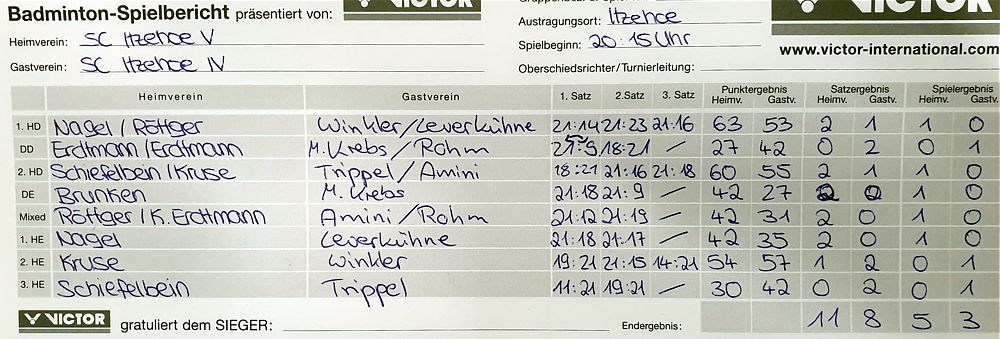 Badminton-Spielbericht präsentiert von: VICTOR
Austragungsort: Itzehoe VICTOR
Heimverein: SC Itzehoe V Spielbeginn: 20:15 Uhr www.victor-international.com
Gastverein: SC Itzehoe IV Oberschiedsrichter/Turnierleitung:
Heimverein Gastverein 1. Satz 2.Satz 3. Satz Punktergebnis Satzergebnis Spielergebnis
Heimv. Gastv. Heimv. Gastv. Heimv. Gastv.
1. HD Nagel / Röttger Winkler/Leverkühne 21:14 21:23 21:16 63 53 2 1 1 0
DD Erdtmann/Erdtmann M. Krebs / Rohm 18:21 / 27 42 0 2 0 1
2. HD Schiefelbein/Kruse Trippel / Amini 18:21 21:16 21:18 60 55 2 1 1 0
DE Brunken M. Krebs 21:18 21:9 / 42 27 2 0 1 0
Mixed Röttger / K. Erdtmann Amini / Rohm 21:12 21:19 / 42 31 2 0 1 0
1. HE Nagel Leverkühne 21:18 21:17 / 42 35 2 0 1 0
2. HE Kruse Winkler 19:21 21:15 14:21 54 57 1 2 0 1
3. HE Schiefelbein Trippel 11:21 19:21 / 30 42 0 2 0 1
VICTOR gratuliert dem SIEGER: Endergebnis: 11 8 5 3